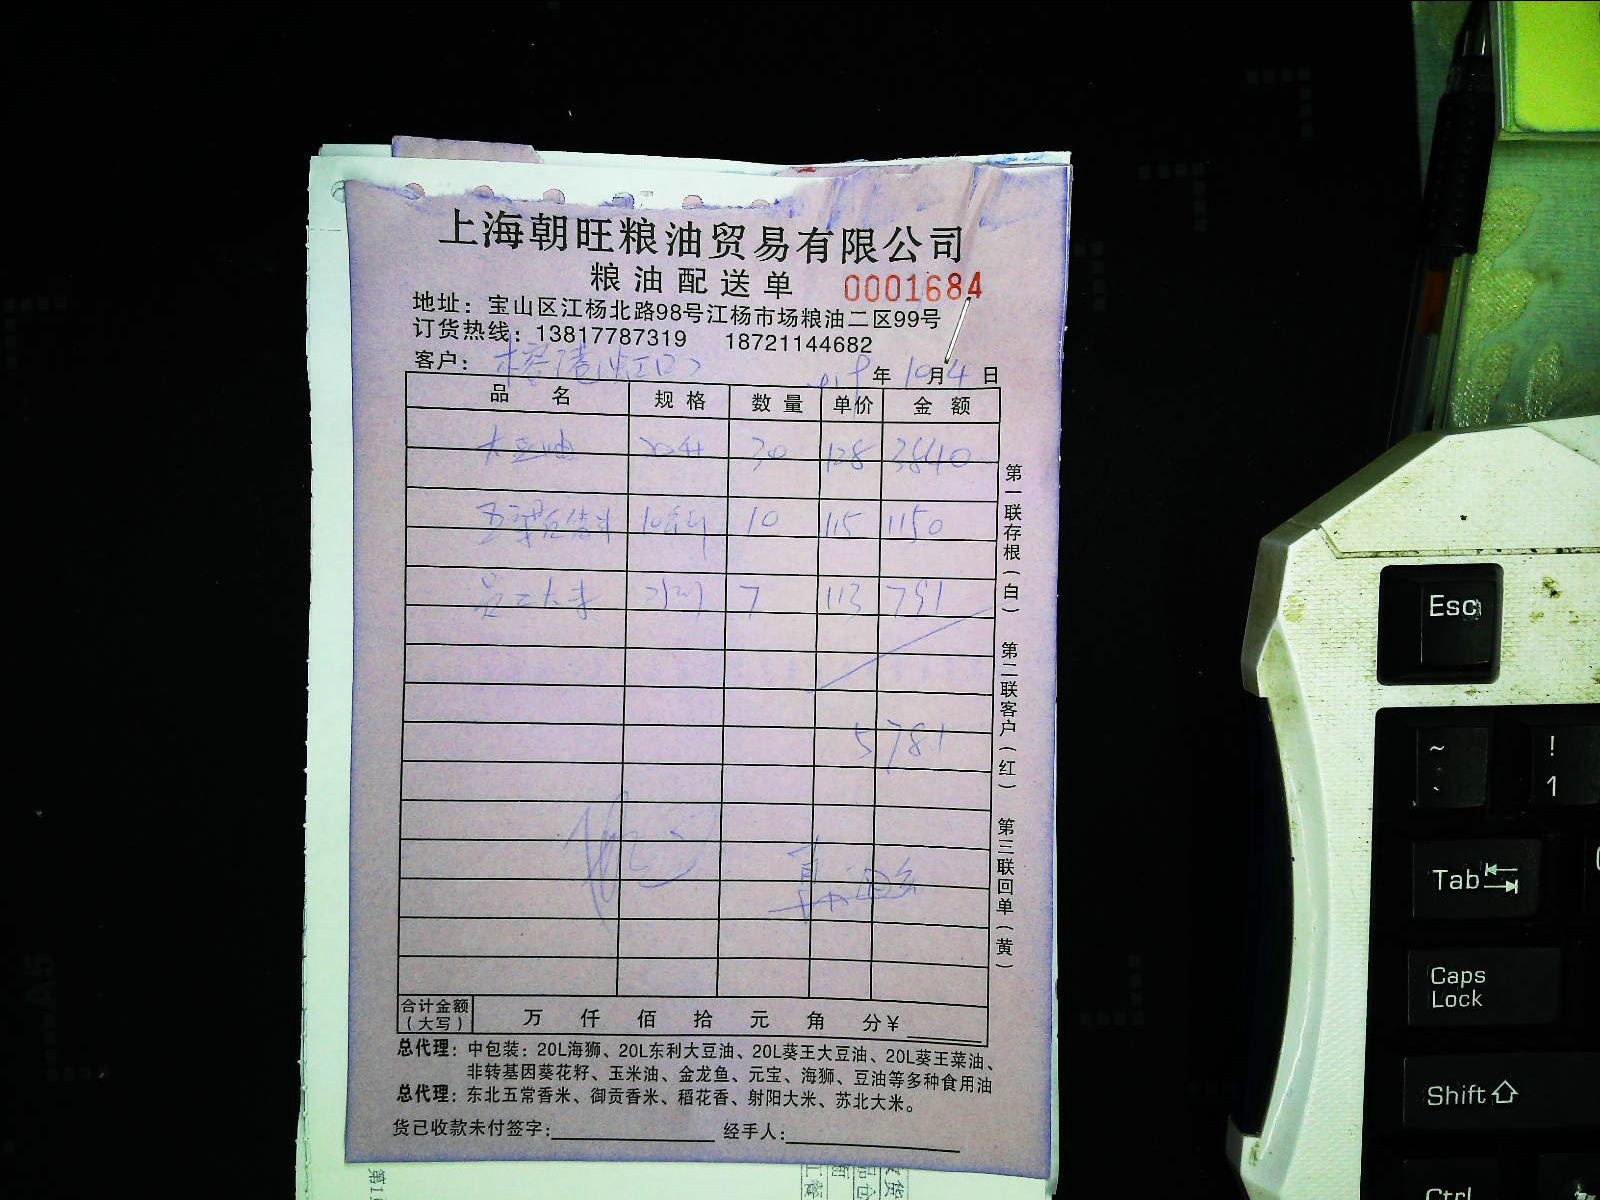 上海朝旺粮油贸易有限公司
粮油配送单 0001684
地址：宝山区江杨北路98号江杨市场粮油二区99号
订货热线：13817787319 18721144682
客户： 年 10月4日
品名 规格 数量 单价 金额
大豆油 30 128 3840
10 115 1150
员工大米 7 113 791
5781
第一联存根（白） 第二联客户（红） 第三联回单（黄）
合计金额（大写） 万 仟 佰 拾 元 角 分￥
总代理：中包装：20L海狮、20L东利大豆油、20L葵王大豆油、20L葵王菜油、
非转基因葵花籽、玉米油、金龙鱼、元宝、海狮、豆油等多种食用油
总代理：东北五常香米、御贡香米、稻花香、射阳大米、苏北大米。
货已收款未付签字： 经手人：
Esc
~ ! 1
Tab
Caps Lock
Shift
Ctrl